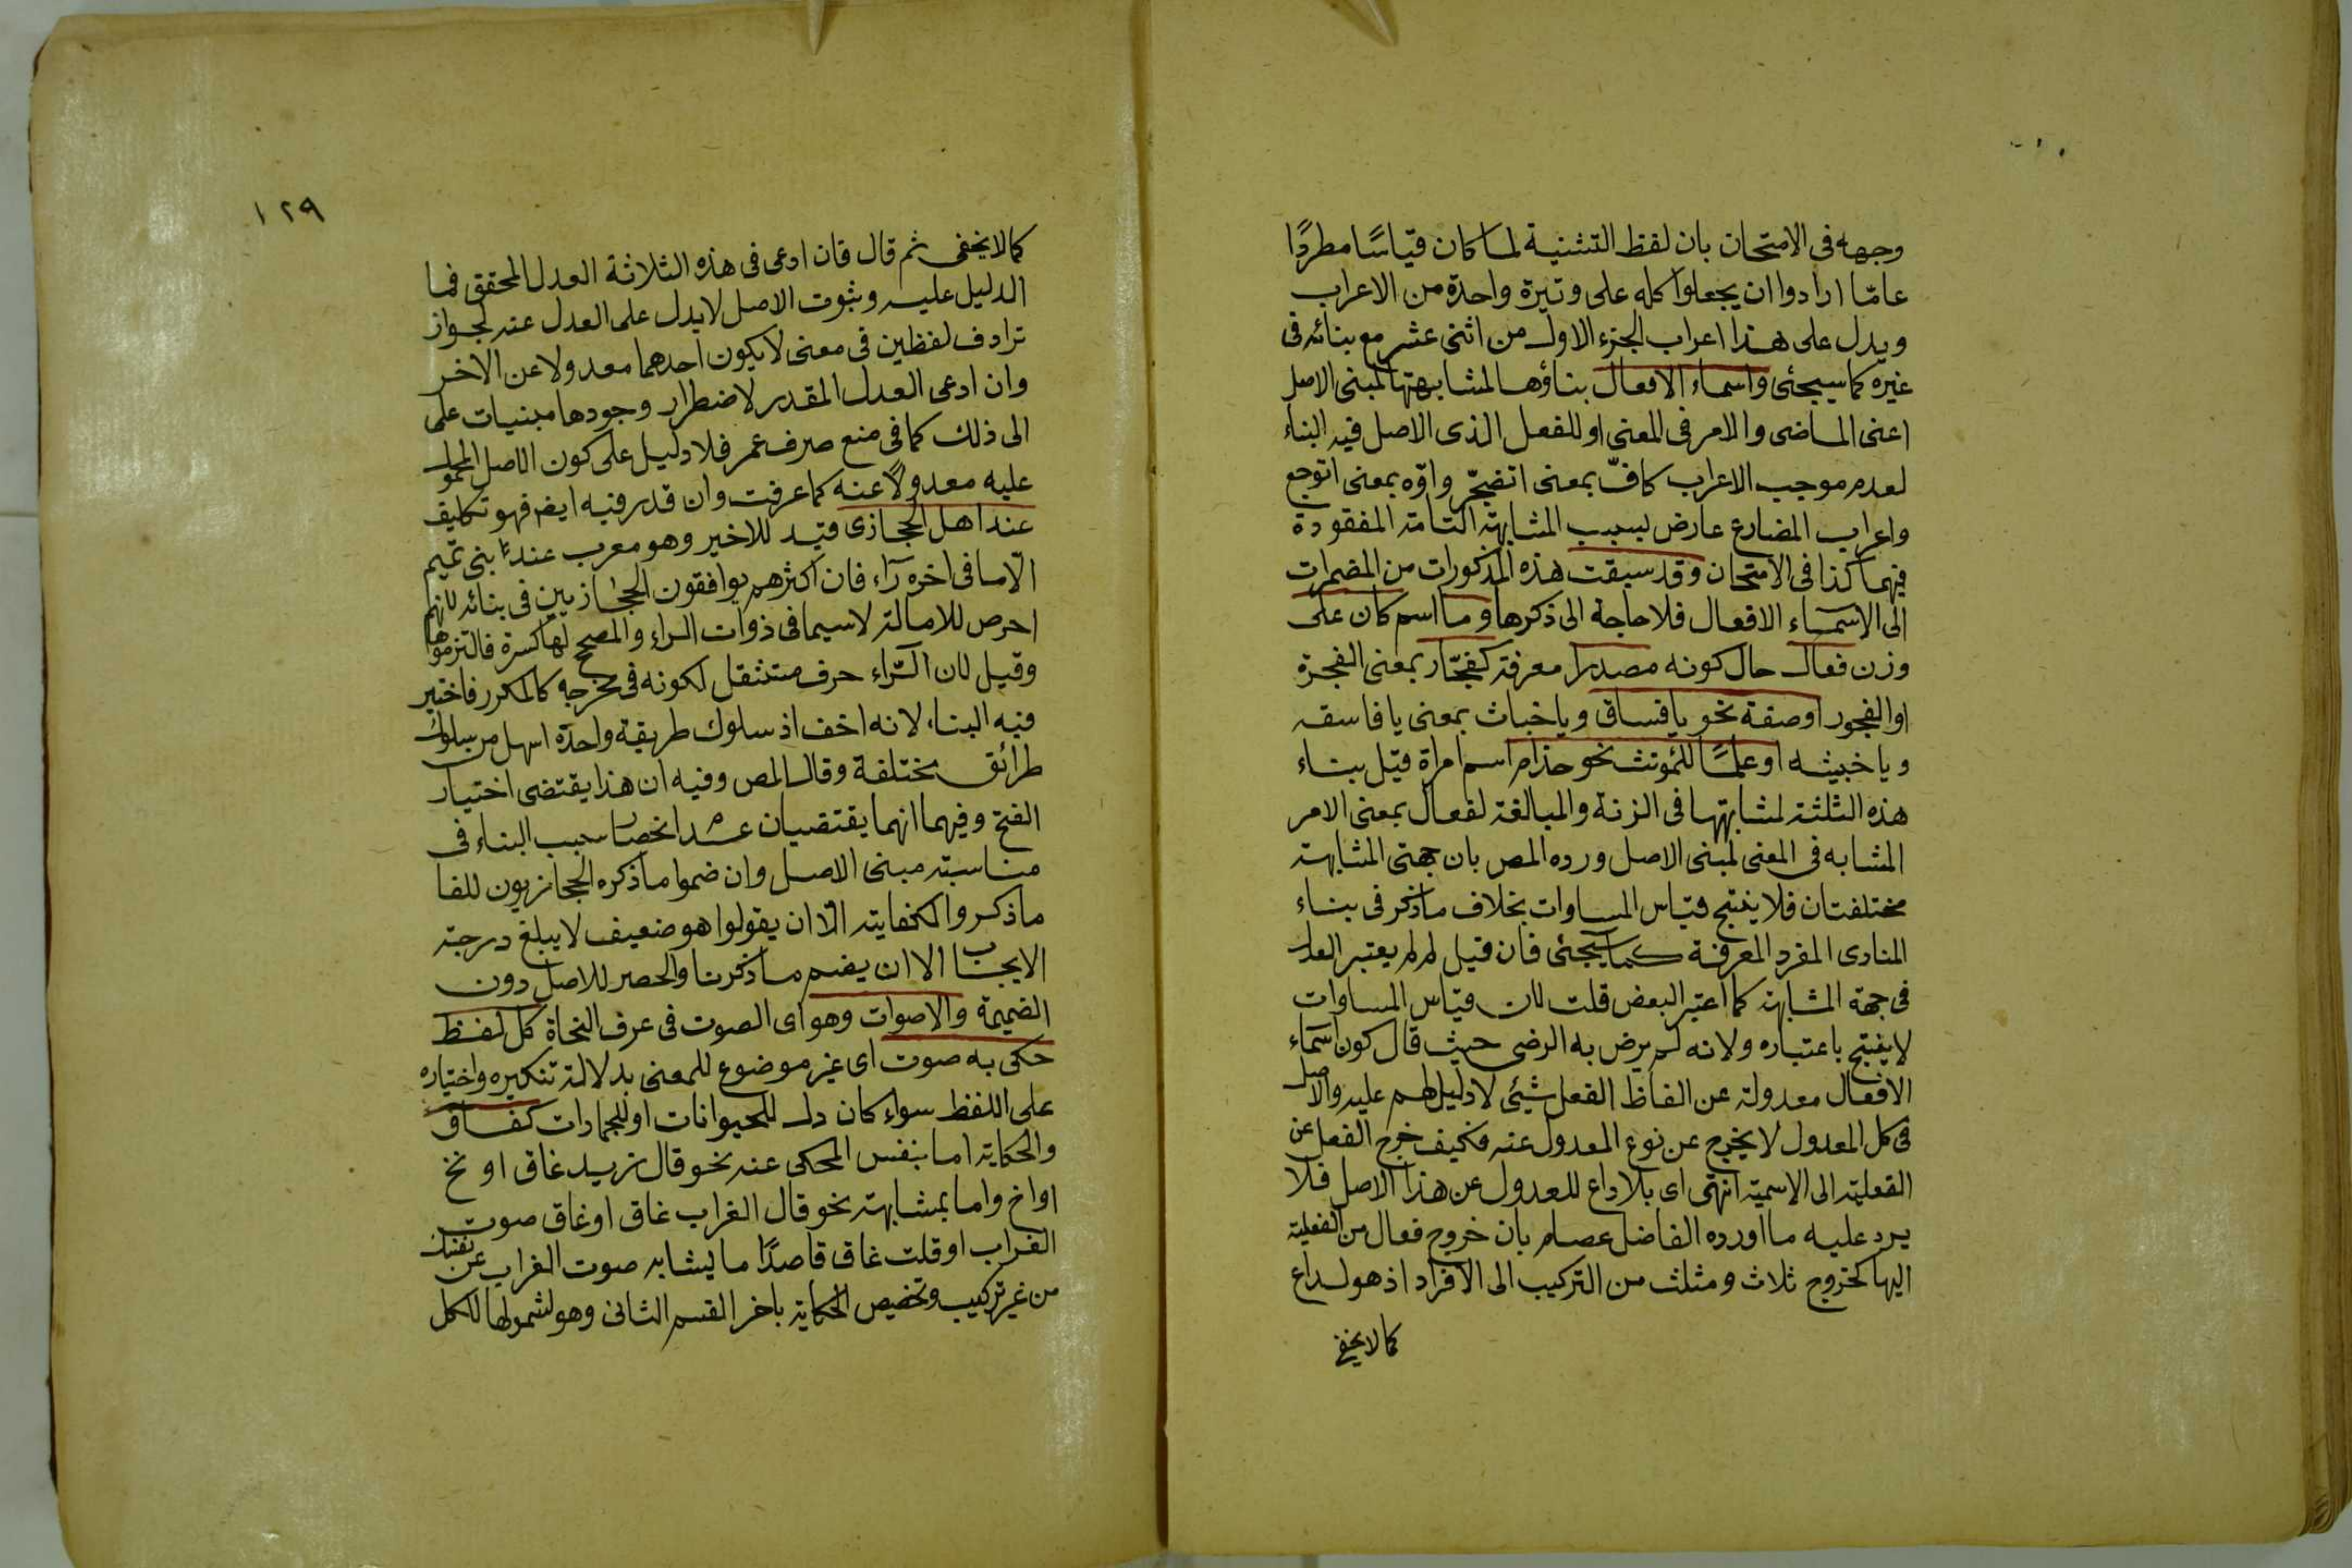 وجهه فى الامتحان بان لفظ التثنية لما كان قياسًا مطردًا
عامّا ارادوا ان يجعلوا كله على وتيرة واحدة من الاعراب
ويدل على هذا اعراب الجزء الاول من اثنى عشر مع بنائه فى
غيره كما سيجئ واسماء الافعال بناؤها لمشابهتها لمبنى الاصل
اعنى الماضى والامر فى المعنى او للفعل الذى الاصل فيه البناء
لعدم موجب الاعراب كافّ بمعنى اتضجّر واوّه بمعنى اتوجع
واعراب المضارع عارض بسبب المشابهة التامة المفقودة
فيهما كذا فى الامتحان وقد سبقت هذه المذكورات من المضمرات
الى الاسماء الافعال فلا حاجة الى ذكرها وما اسم كان على
وزن فعال حال كونه مصدرا معرفة كفجّار بمعنى الفجرة
او الفجور او صفة نحو يا فساق ويا خباث بمعنى يا فاسقه
ويا خبيثه او علمًا للمؤنث نحو حذام اسم امراة قيل بناء
هذه الثلثة لمشابهتها فى الزنة والمبالغة لفعال بمعنى الامر
المشابه فى المعنى لمبنى الاصل ورده المص بان جهتى المشابهة
مختلفتان فلا ينتج قياس المساوات بخلاف ما ذكر فى بناء
المنادى المفرد المعرفة كما سيجئ فان قيل لم لم يعتبر العدل
فى جهة المشابهة كما اعتبر البعض قلت لان قياس المساوات
لا ينتج باعتباره ولانه لم يرض به الرضى حيث قال كون اسماء
الافعال معدولة عن الفاظ الفعل شيئ لا دليل لهم عليه والاصل
فى كل المعدول لا يخرج عن نوع المعدول عنه فكيف خرج الفعل عن
الفعلية الى الاسمية انتهى اى بلا داع للعدول عن هذا الاصل فلا
يرد عليه ما اورده الفاضل عصام بان خروج فعال من الفعلية
اليها كخروج ثلاث ومثلث من التركيب الى الافراد اذ هو لداع
كما لا يخفى
١٢٩
كما لا يخفى ثم قال فان ادعى فى هذه الثلاثة العدل المحقق فما
الدليل عليه وثبوت الاصل لا يدل على العدل عنه لجواز
ترادف لفظين فى معنى لا يكون احدهما معدولا عن الاخر
وان ادعى العدل المقدر لاضطرار وجودها مبنيات على
الى ذلك كما فى منع صرف عمر فلا دليل على كون الاصل المحمول
عليه معدولًا عنه كما عرفت وان قدر فيه ايض فهو تكليف
عند اهل الحجازى قيد للاخير وهو معرب عند بنى تميم
الّا ما فى اخره رآء فان اكثرهم يوافقون الحجازيين فى بنائه لانهم
احرص للامالة لا سيما فى ذوات الراء والمصحح لها كسرة فالتزموها
وقيل لان الرّاء حرف مستثقل لكونه فى مخرجه كالمكرر فاختير
فيه البناء لانه اخف اذ سلوك طريقة واحدة اسهل من سلوك
طرائق مختلفة وقال المص وفيه ان هذا يقتضى اختيار
الفتح وفيهما انهما يقتضيان عدم انحصار سبب البناء فى
مناسبة مبنى الاصل وان ضموا ما ذكره الحجازيون للفا
ما ذكروا لكفايته الّا ان يقولوا هو ضعيف لا يبلغ درجة
الايجاب الا ان يضم ما ذكرنا والحصر للاصل دون
الضميمة والاصوات وهو اى الصوت فى عرف النحاة كل لفظ
حكى به صوت اى غير موضوع للمعنى بدلالة تنكيره واختياره
على اللفظ سواء كان دل للحيوانات او للجمادات كغاق
والحكاية اما بنفس المحكى عنه نحو قال زيد غاق او نخ
او اخ واما بمشابهة نحو قال الغراب غاق او غاق صوت
الغراب او قلت غاق قاصدًا ما يشابه صوت الغراب عن نفسك
من غير تركيب وتخصيص الحكاية باخر القسم الثانى وهو لشمولها للكل